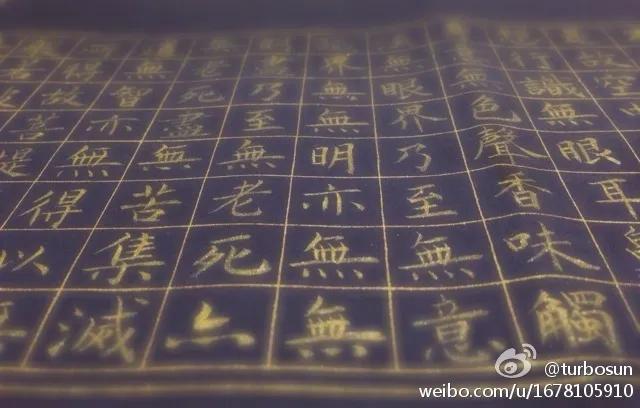 故空
行識無眼耳
無色聲香味觸
無眼界乃至無意
界無無明亦無無
盡乃至無老死亦
無老死盡無苦集滅
道無智亦無得以無
得故菩提
@turbosun
weibo.com/u/1678105910